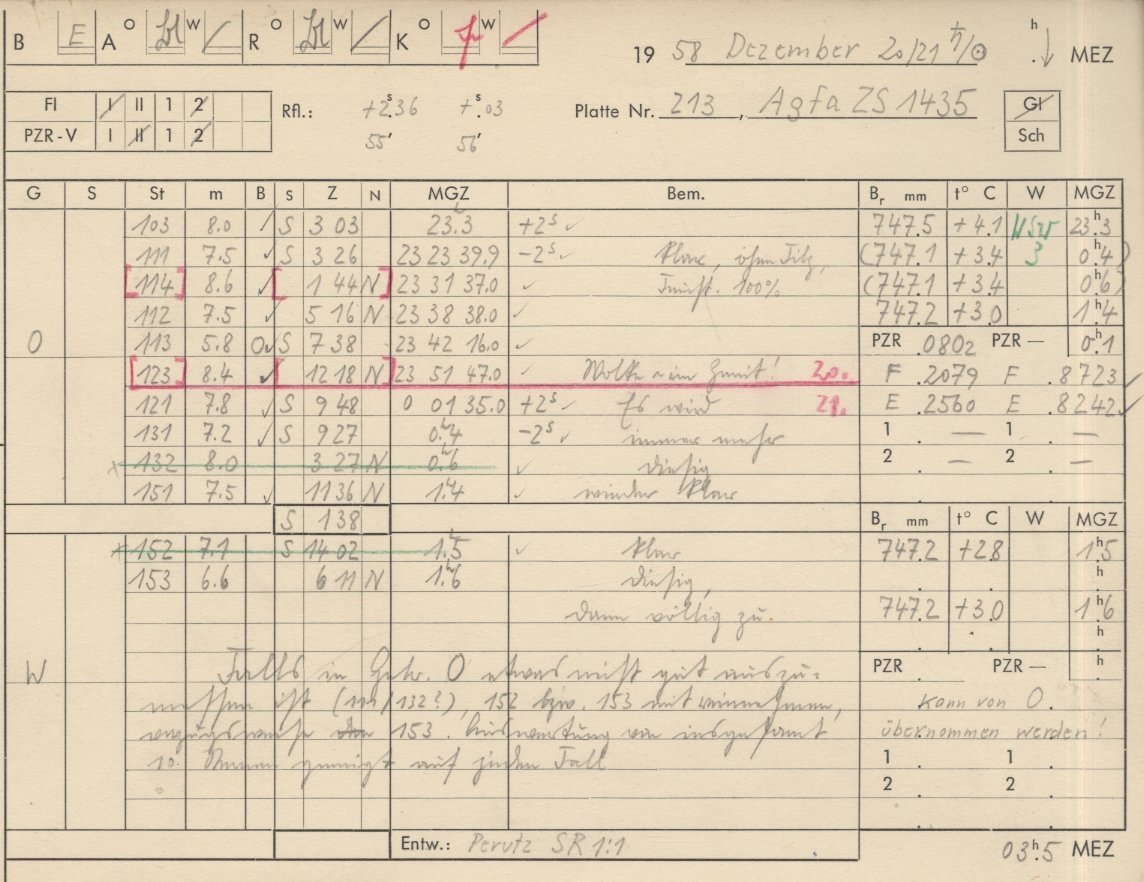 B E A O W R O W K O W
19 58 Dezember 20/21 ♄/☉ h MEZ
FI I II 1 2 Rfl.: +2.s36 +.s03 Platte Nr. 213, Agfa ZS 1435 Gl
PZR-V I II 1 2 55' 56' Sch
G S St m B S Z N MGZ Bem. Br mm t° C W MGZ
103 8.0 ✓ S 3 03 23.3 +2s ✓ 747.5 +4.1 23.h3
111 7.5 ✓ S 3 26 23 23 39.9 -2s ✓ klar, (747.1 +3.4 3 0.h4)
[114] 8.6 ✓ [ 1 44 N] 23 31 37.0 ✓ 100% (747.1 +3.4 0.h6)
112 7.5 ✓ 5 16 N 23 38 38.0 ✓ 747.2 +3.0 1.h4
O 113 5.8 O✓ S 7 38 23 42 16.0 ✓ PZR .0802 PZR — 0.h1
[123] 8.4 ✓ [ 12 18 N] 23 51 47.0 ✓ Wolke im Zenit! 20. F .2079 F .8723 ✓
121 7.8 ✓ S 9 48 0 01 35.0 +2s ✓ Es wird 21. E .2560 E .8242 ✓
131 7.2 ✓ S 9 27 0.h4 -2s ✓ immer mehr 1 . — 1 . —
x 132 8.0 3 27 N 0.h6 ✓ diesig 2 . — 2 . —
151 7.5 ✓ 11 36 N 1.h4 ✓ wieder klar
S 1 38 Br mm t° C W MGZ
x 152 7.1 S 14 02 1.h5 ✓ klar 747.2 +2.8 1.h5
153 6.6 6 11 N 1.h6 diesig, h
dann völlig zu. 747.2 +3.0 1.h6
h
W Falls in Gehr. O etwas nicht gut auszu= PZR PZR — h
messen ist ( /132?), 152 bzw. 153 mit kann von O.
153. Auswertung von insgesamt übernommen werden!
10 genügt auf jeden Fall 1 . 1 .
2 . 2 .
Entw.: Perutz SR 1:1 03.h5 MEZ